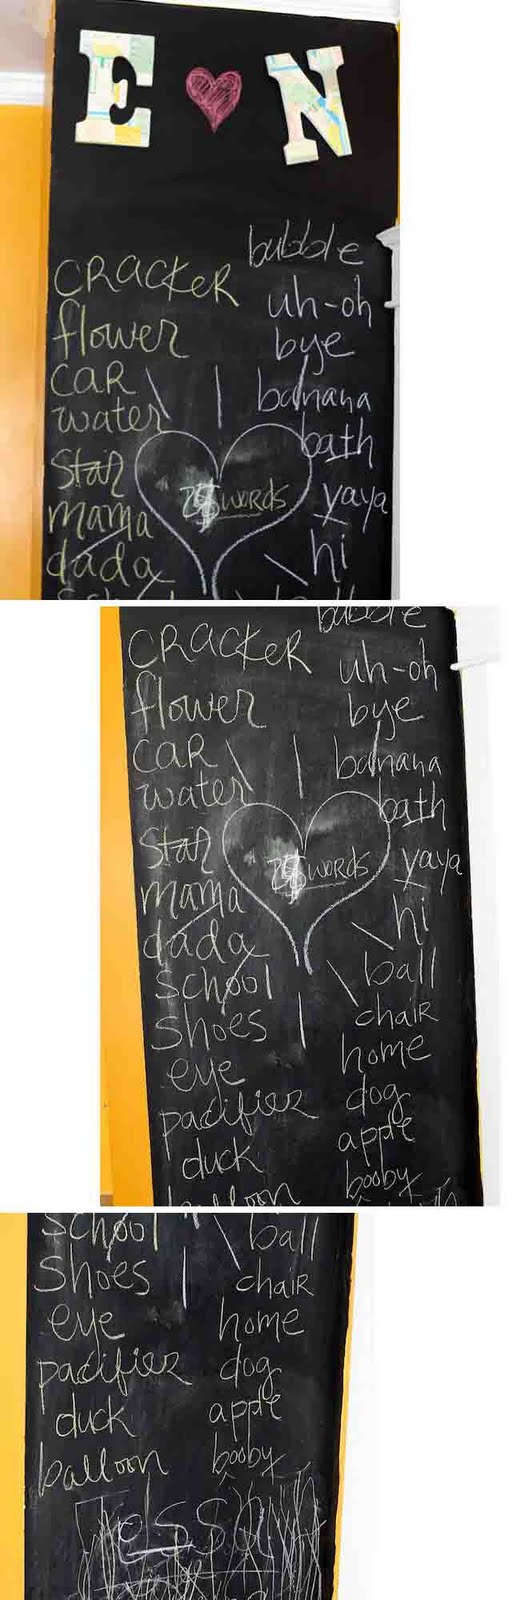 E N
bubble
CRACKER
uh-oh
flower
bye
CAR
banana
water
bath
Star
words
yaya
mama
hi
dada
bubble
CRACKER
uh-oh
flower
bye
CAR
banana
water
bath
Star
words
yaya
mama
hi
dada
ball
school
chair
shoes
home
eye
dog
pacifier
apple
duck
booby
balloon
school
ball
Shoes
chair
eye
home
pacifier
dog
duck
apple
balloon
booby